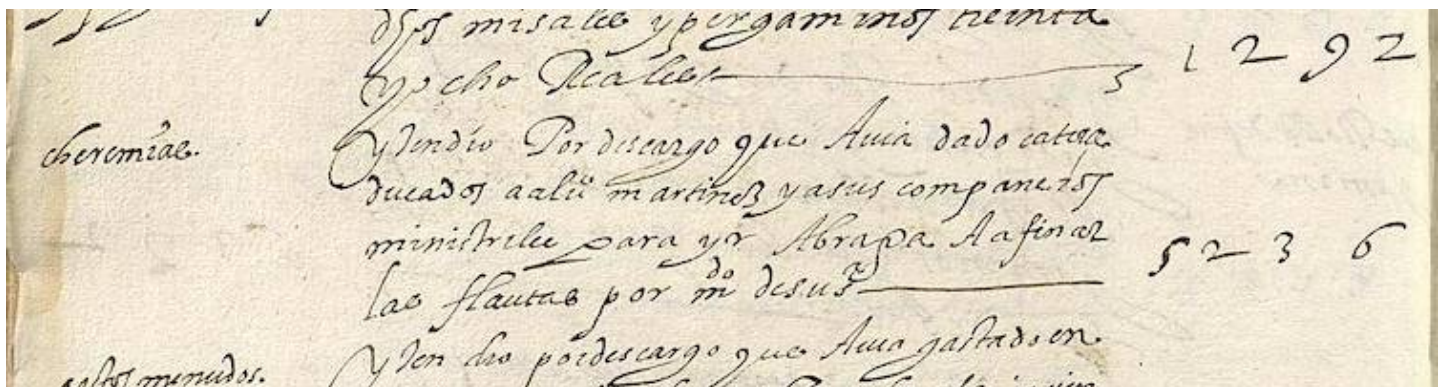 dhos misales y pergaminos treinta
y ocho Reales 1 292
cheremias. yten dio Por descargo que Avia dado catorce
ducados a alº martinez y a sus companeros
ministriles para yr A brapa A afinar
las flautas por mdo de su sª 5 236
gastos menudos. yten dio por descargo que Avia gastado en